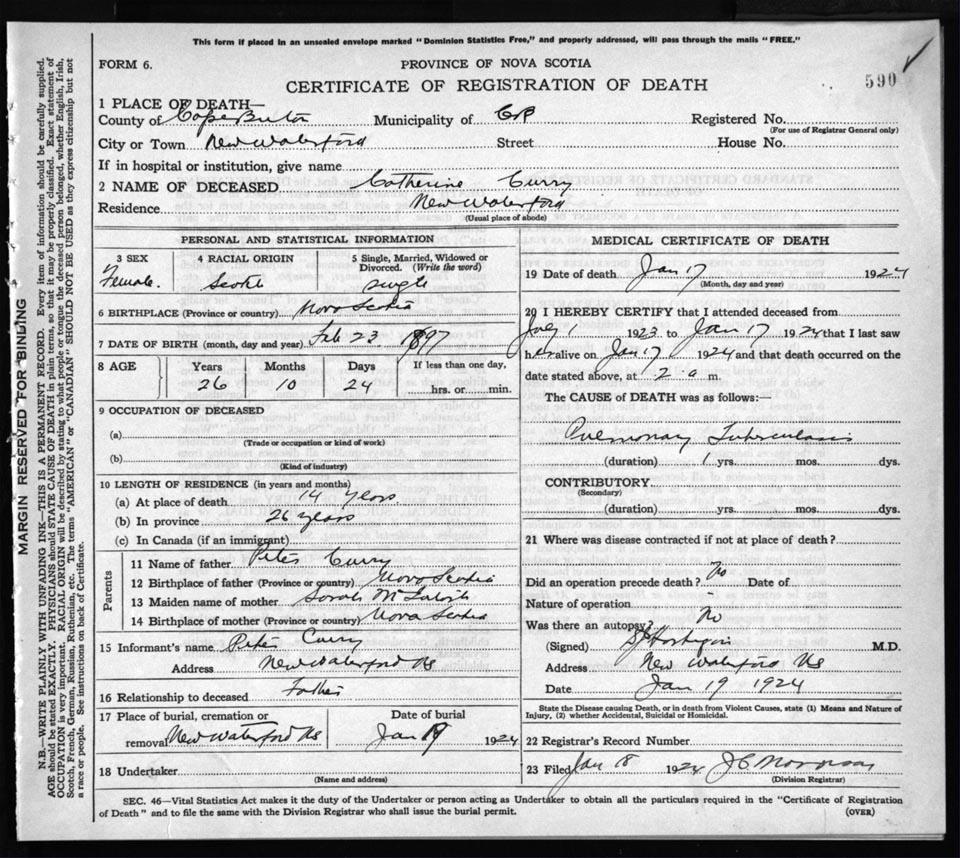 This form if placed in an unsealed envelope marked "Dominion Statistics Free," and properly addressed, will pass through the mails "FREE."
FORM 6.
PROVINCE OF NOVA SCOTIA
590
CERTIFICATE OF REGISTRATION OF DEATH
1 PLACE OF DEATH—
County of Cape Breton Municipality of CB Registered No.
(For use of Registrar General only)
City or Town New Waterford Street House No.
If in hospital or institution, give name
2 NAME OF DECEASED Catherine Curry
Residence New Waterford
(Usual place of abode)
PERSONAL AND STATISTICAL INFORMATION
3 SEX
Female.
4 RACIAL ORIGIN
Scotch
5 Single, Married, Widowed or Divorced. (Write the word)
single
6 BIRTHPLACE (Province or country) Nova Scotia
7 DATE OF BIRTH (month, day and year) Feb 23 1897
8 AGE
Years Months Days If less than one day,
26 10 24 hrs. or min.
9 OCCUPATION OF DECEASED
(a)
(Trade or occupation or kind of work)
(b)
(Kind of industry)
10 LENGTH OF RESIDENCE (in years and months)
(a) At place of death 14 years
(b) In province 26 years
(c) In Canada (if an immigrant)
Parents
11 Name of father Peter Curry
12 Birthplace of father (Province or country) Nova Scotia
13 Maiden name of mother Sarah
14 Birthplace of mother (Province or country) Nova Scotia
15 Informant's name Peter Curry
Address New Waterford NS
16 Relationship to deceased Father
17 Place of burial, cremation or removal New Waterford NS
Date of burial
Jan 19 1924
18 Undertaker
(Name and address)
MEDICAL CERTIFICATE OF DEATH
19 Date of death Jan 17 1924
(Month, day and year)
20 I HEREBY CERTIFY that I attended deceased from
July 1 1923 to Jan 17 1924 that I last saw
her alive on Jan 17 1924 and that death occurred on the
date stated above, at 2 a m.
The CAUSE of DEATH was as follows:—
Pulmonary Tuberculosis
(duration) 1 yrs. mos. dys.
CONTRIBUTORY
(Secondary)
(duration) yrs. mos. dys.
21 Where was disease contracted if not at place of death?
Did an operation precede death? No Date of
Nature of operation
Was there an autopsy? No
(Signed) M.D.
Address New Waterford NS
Date Jan 19 1924
State the Disease causing Death, or in death from Violent Causes, state (1) Means and Nature of
Injury, (2) whether Accidental, Suicidal or Homicidal.
22 Registrar's Record Number
23 Filed Jan 18 1924 J C Morrison
(Division Registrar)
SEC. 46—Vital Statistics Act makes it the duty of the Undertaker or person acting as Undertaker to obtain all the particulars required in the "Certificate of Registration
of Death" and to file the same with the Division Registrar who shall issue the burial permit. (OVER)
MARGIN RESERVED FOR BINDING
N.B.—WRITE PLAINLY WITH UNFADING INK—THIS IS A PERMANENT RECORD. Every item of information should be carefully supplied.
AGE should be stated EXACTLY. PHYSICIANS should STATE CAUSE OF DEATH in plain terms, so that it may be properly classified. Exact statement of
OCCUPATION is very important. RACIAL ORIGIN will be described by stating to what people or tongue the deceased person belonged, whether English, Irish,
Scotch, French, German, Russian, Ruthenian, etc. The terms "AMERICAN" or "CANADIAN" SHOULD NOT BE USED as they express citizenship but not
a race or people. See instructions on back of Certificate.